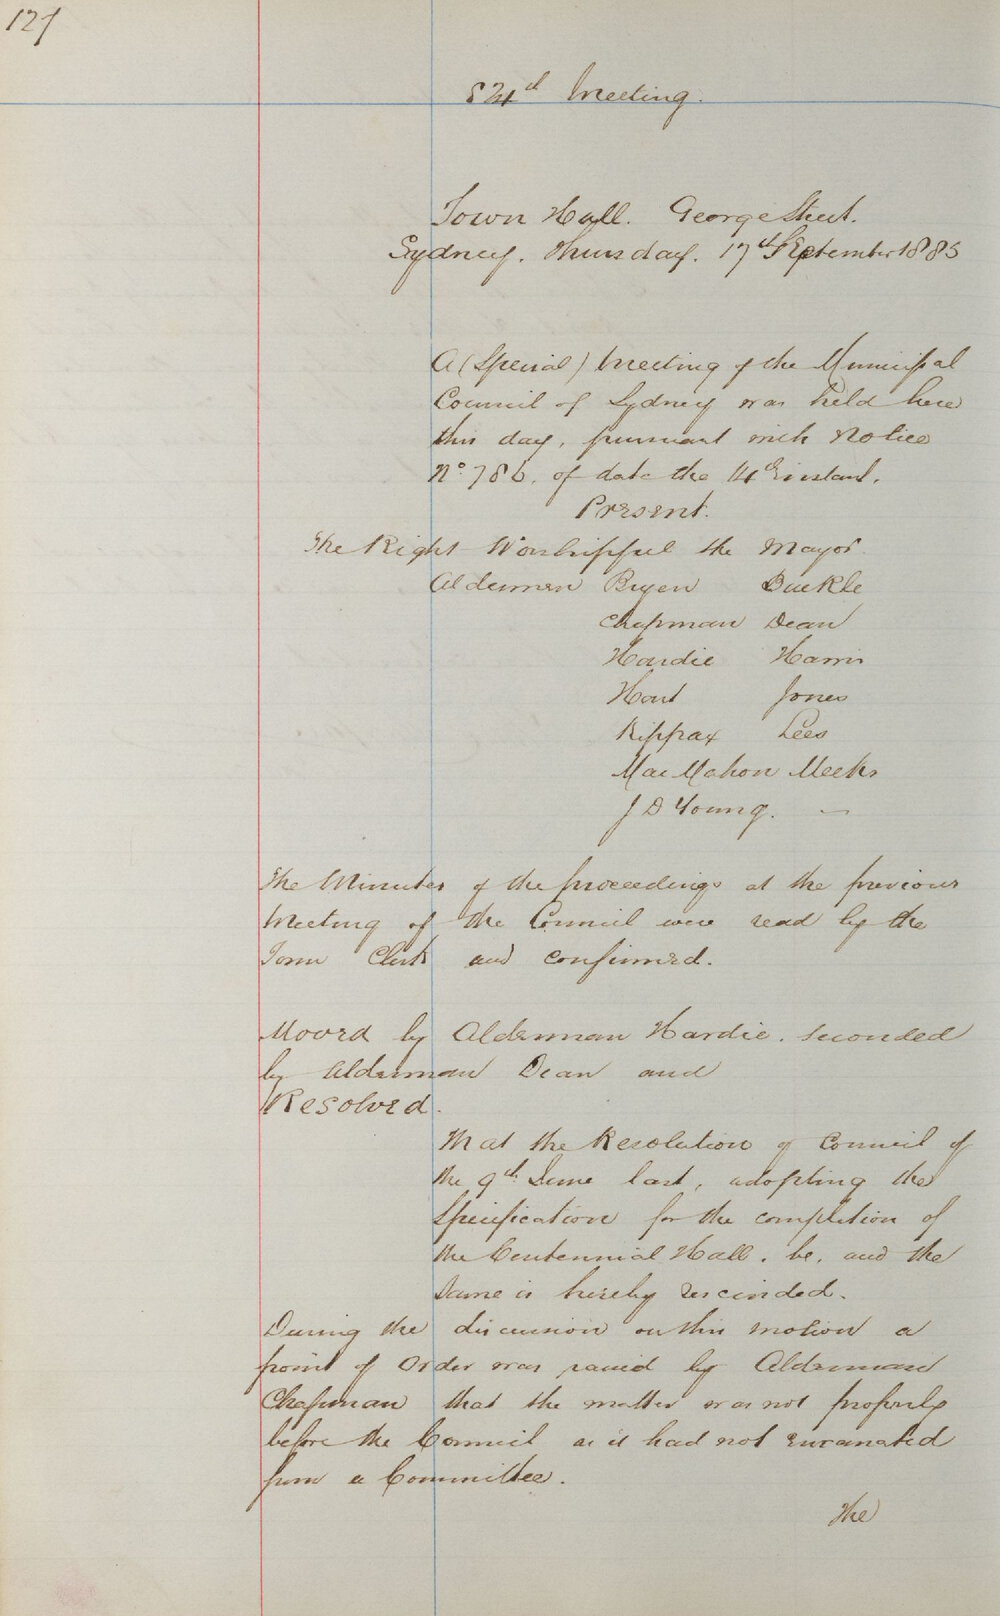 127
Meeting.
Town Hall. George Street.
Sydney. Thursday. 17th September 1885
A (Special) Meeting of the Municipal
Council of Sydney was held here
this day, pursuant with Notice
No. 786. of date the 14th instant.
Present.
The Right Worshipful the Mayor.
Aldermen Buckle
Chapman Dean
Hardie Harris
Hart Jones
Kippax Lees
MacMahon Meeks
J D Young. —
The Minutes of the proceedings at the previous
Meeting of the Council were read by the
Town Clerk and confirmed.
Moved by Alderman Hardie. seconded
by Alderman Dean and
Resolved.
That the Resolution of Council of
the 9th June last, adopting the
Specification for the completion of
the Centennial Hall. be, and the
same is hereby rescinded.
During the discussion on this motion a
point of Order was raised by Alderman
Chapman that the matter was not properly
before the Council as it had not emanated
from a Committee.
The